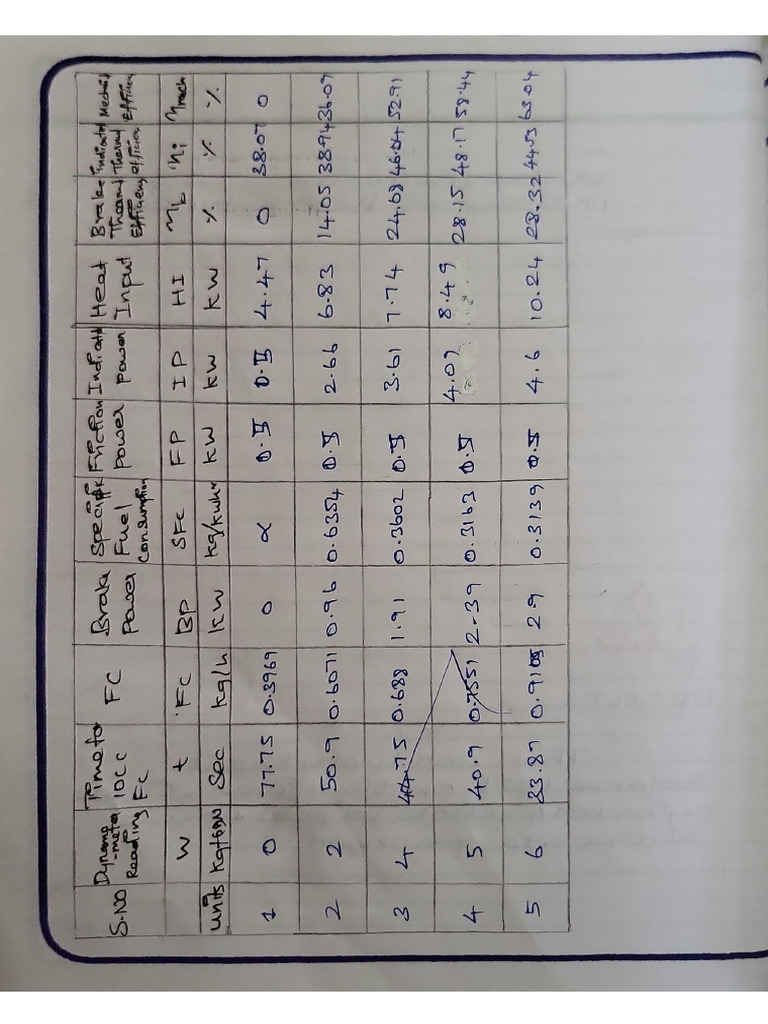 S.NO Dynamo-meter Reading Time for 10cc FC FC Brake Power Specific Fuel Consumption Friction Power Indicated Power Heat Input Brake Thermal Efficiency Indicated Thermal Efficiency Mechanical
W t FC BP SFC FP IP HI ηb ηi ηmech
units Sec kg/h kW kg/kWhr kW kW kW % % %
1 0 77.75 0.3969 0 α 4.47 0 38.07 0
2 2 50.9 0.6071 0.96 0.6354 2.66 6.83 14.05 38.94 36.09
3 4 0.688 1.91 0.3602 3.61 7.74 24.68 46.64 52.91
4 5 40.9 0.7551 2.39 0.3163 4.09 8.49 28.15 48.17 58.44
5 6 33.87 2.9 0.3139 4.6 10.24 28.32 44.53 63.04